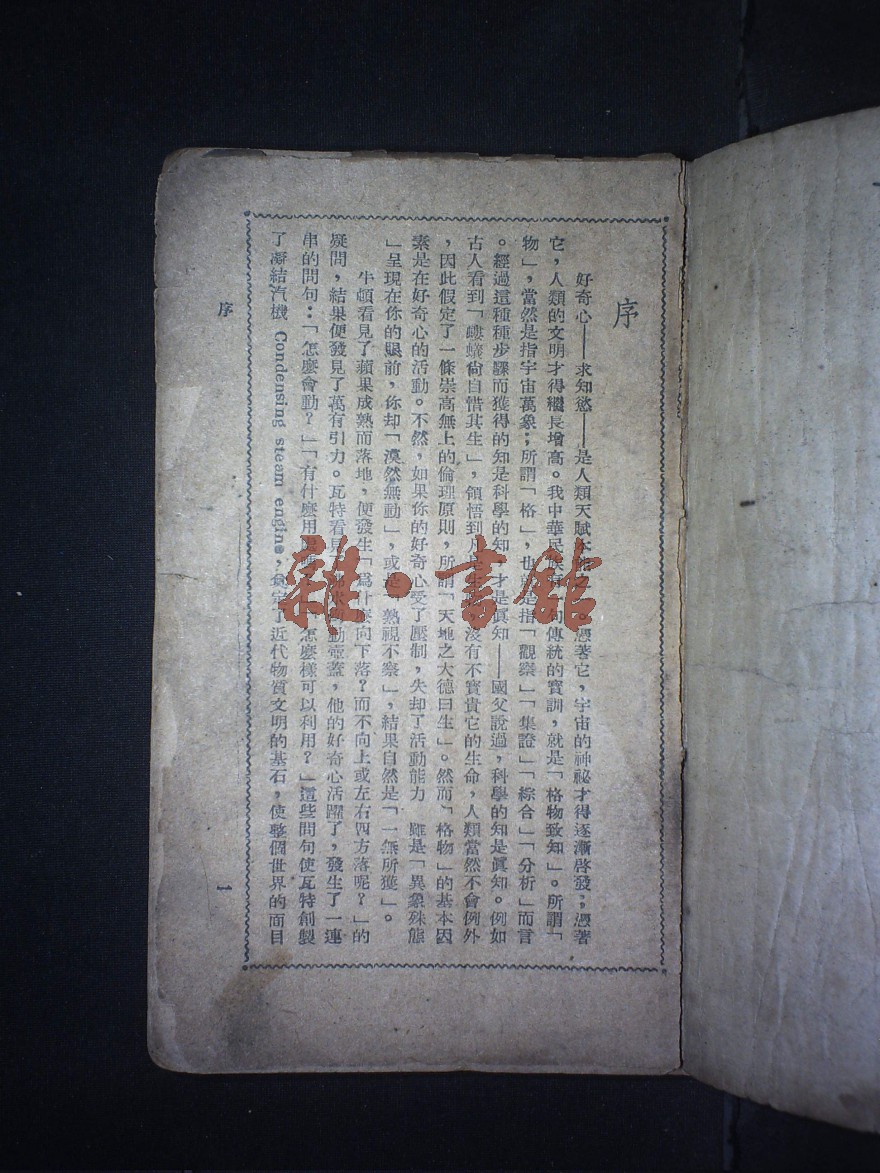 序
好奇心——求知慾——是人類天賦。憑著它，宇宙的神祕才得逐漸啓發，憑著
它，人類的文明才得繼長增高。我中華民族傳統的寶訓，就是「格物致知」。所謂「
物」，當然是指宇宙萬象；所謂「格」，也是指「觀察」「集證」「綜合」「分析」而言
。經過這種種步驟而獲得的知是科學的知，才是眞知——國父說過，科學的知是眞知。例如
古人看到「螻蟻尙自惜其生」，領悟到凡沒有不寶貴它的生命，人類當然不會例外
，因此假定了一條崇高無上的倫理原則，所謂「天地之大德曰生」。然而「格物」的基本因
素是在好奇心的活動。不然，如果你的好奇心受了壓制，失却了活動能力 雖是「異象殊態
」呈現在你的眼前，你却「漠然無動」，或是「熟視不察」，結果自然是「一無所獲」。
牛頓看見了蘋果成熟而落地，便發生「爲什麼向下落？而不向上或左右四方落呢？」的
疑問，結果便發見了萬有引力。瓦特看見動壺蓋，他的好奇心活躍了，發生了一連
串的問句：「怎麼會動？」「有什麼用「怎麼樣可以利用？」這些問句使瓦特創製
了凝結汽機 Condensing steam engine，奠定了近代物質文明的基石，使整個世界的面目
序
1
雜·書館